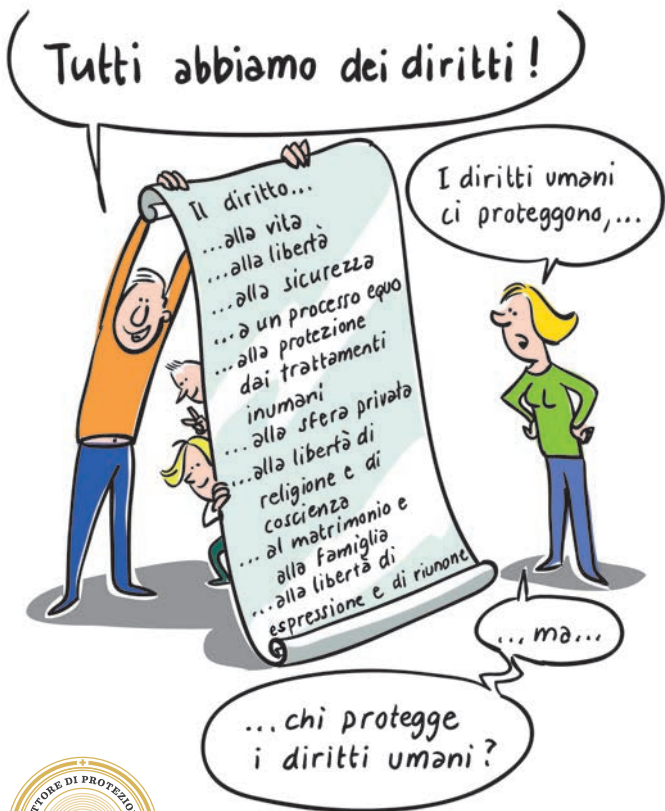 Tutti abbiamo dei diritti!
I diritti umani
ci proteggono,...
Il diritto...
...alla vita
...alla libertà
...alla sicurezza
...a un processo equo
...alla protezione
dai trattamenti
inumani
...alla sfera privata
...alla libertà di
religione e di
coscienza
...al matrimonio e
alla famiglia
...alla libertà di
espressione e di riunone
...ma...
...chi protegge
i diritti umani?
DI PROTEZIO